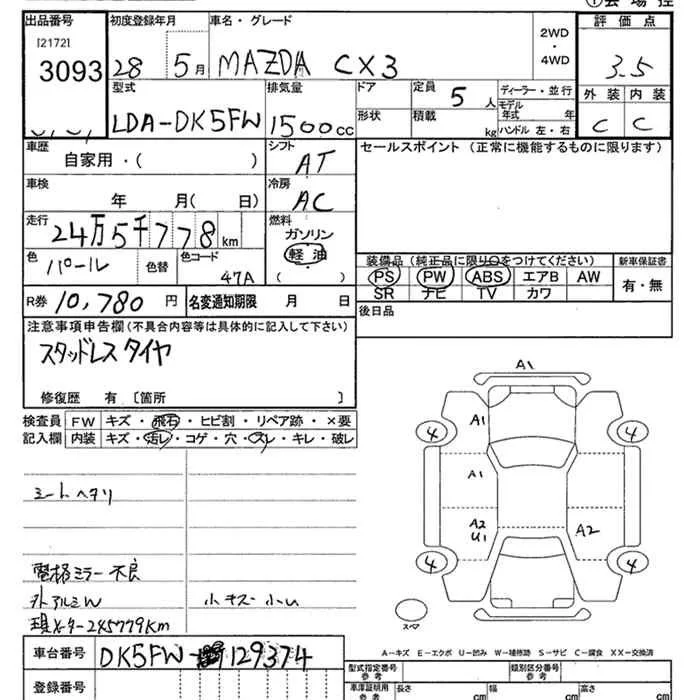 ①会場控
出品番号 初度登録年月 車名・グレード 2WD・4WD 評価点
[2172]
3093 28 5月 MAZDA CX3 3.5
型式 排気量 ドア 定員 5人 ディーラー・並行 外装 内装
LDA-DK5FW 1500cc 形状 積載 kg モデル年式 年 ハンドル 左・右 C C
車歴 自家用・( ) シフト AT セールスポイント (正常に機能するものに限ります)
車検 年 月( 日) 冷房 AC
走行 24万5千778km 燃料 ガソリン 軽油 ( )
色 パール 色替 色コード 47A
装備品 (純正品に限り○をつけてください) 新車保証書
PS PW ABS エアB AW 有・無
SR ナビ TV カワ
R券 10,780円 名変通知期限 月 日 後日品
注意事項申告欄(不具合内容等は具体的に記入して下さい)
スタッドレスタイヤ
修復歴 有 〔箇所 〕
検査員 FW キズ・飛石・ヒビ割・リペア跡・×要
記入欄 内装 キズ・汚レ・コゲ・穴・スレ・キレ・破レ
シートヘタリ
電格ミラー不良
外アルミW 小キズ小U
現メーター245779Km
A1
A1
4 4
A1
A2
U1 A2
4 4
スペア
A-キズ E-エクボ U-凹み W-補修跡 S-サビ C-腐食 XX-交換済
車台番号 DK5FW-129374
型式指定番号 参考 類別区分番号 参考
登録番号 車庫証明用 参考 長さ cm 幅 cm 高さ cm